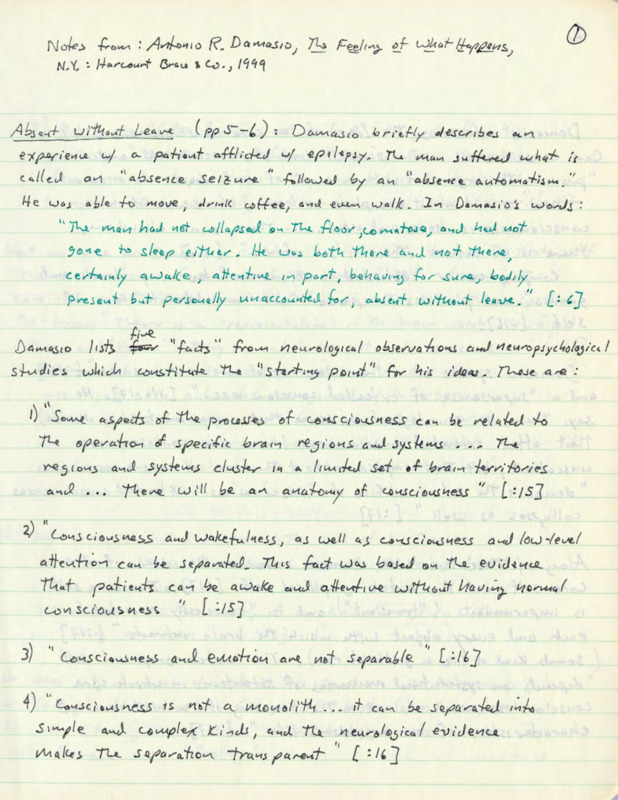 1
Notes from: Antonio R. Damasio, The Feeling of What Happens,
N.Y.: Harcourt Brace & Co., 1999
Absent Without Leave (pp 5-6): Damasio briefly describes an
experience w/ a patient afflicted w/ epilepsy. The man suffered what is
called an "absence seizure" followed by an "absence automatism."
He was able to move, drink coffee, and even walk. In Damasio's words:
"The man had not collapsed on the floor, comatose, and had not
gone to sleep either. He was both there and not there,
certainly awake, attentive in part, behaving for sure, bodily
present but personally unaccounted for, absent without leave." [:6]
five
Damasio lists four "facts" from neurological observations and neuropsychological
studies which constitute the "starting point" for his ideas. These are:
1) "Some aspects of the processes of consciousness can be related to
the operation of specific brain regions and systems .... The
regions and systems cluster in a limited set of brain territories
and ... there will be an anatomy of consciousness" [:15]
2) "Consciousness and wakefulness, as well as consciousness and low-level
attention can be separated. This fact was based on the evidence
that patients can be awake and attentive without having normal
consciousness" [:15]
3) "Consciousness and emotion are not separable" [:16]
4) "Consciousness is not a monolith ... it can be separated into
simple and complex kinds, and the neurological evidence
makes the separation transparent" [:16]